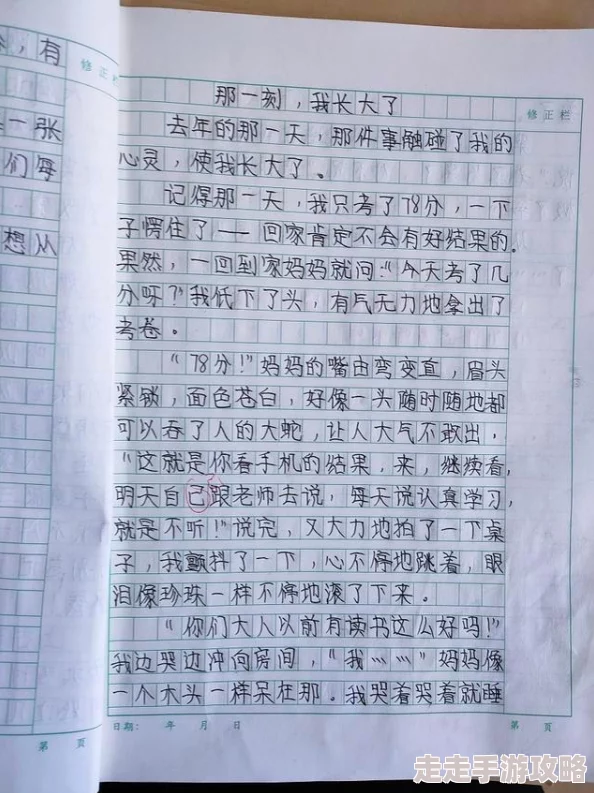 ，有
一张
们每
想从
修正栏
那一刻，我长大了
去年的那一天，那件事触碰了我的
心灵，使我长大了。
记得那一天，我只考了78分，一下
子愣住了——回家肯定不会有好结果的。
果然，一回到家妈妈就问：“今天考了几
分呀？”我低下了头，有气无力地拿出了
考卷。
“78分！”妈妈的嘴由弯变直，眉头
紧锁，面色苍白，好像一头随时随地都
可以吞了人的大蛇，让人大气不敢出，
“这就是你看手机的结果，来，继续看，
明天自已跟老师去说，每天说认真学习，
就是不听！”说完，又大力地拍了一下桌
子，我颤抖了一下，心不停地跳着，眼
泪像珍珠一样不停地滚了下来。
“你们大人以前有读书这么好吗！”
我边哭边冲向房间，“我……”妈妈像
一个木头一样呆在那。我哭着哭着就睡
日期： 年 月 日
第 页
第 页
走走手游攻略